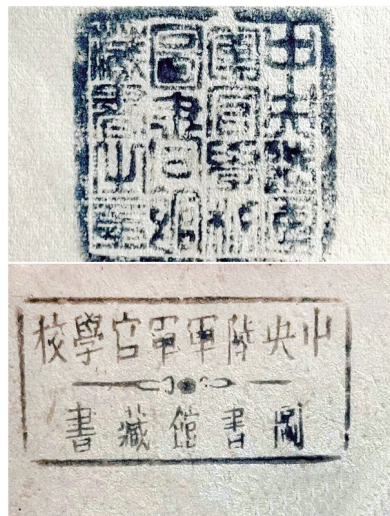 中央陸軍
軍官學校
藏書之章
中央陸軍軍官學校
圖書館藏書